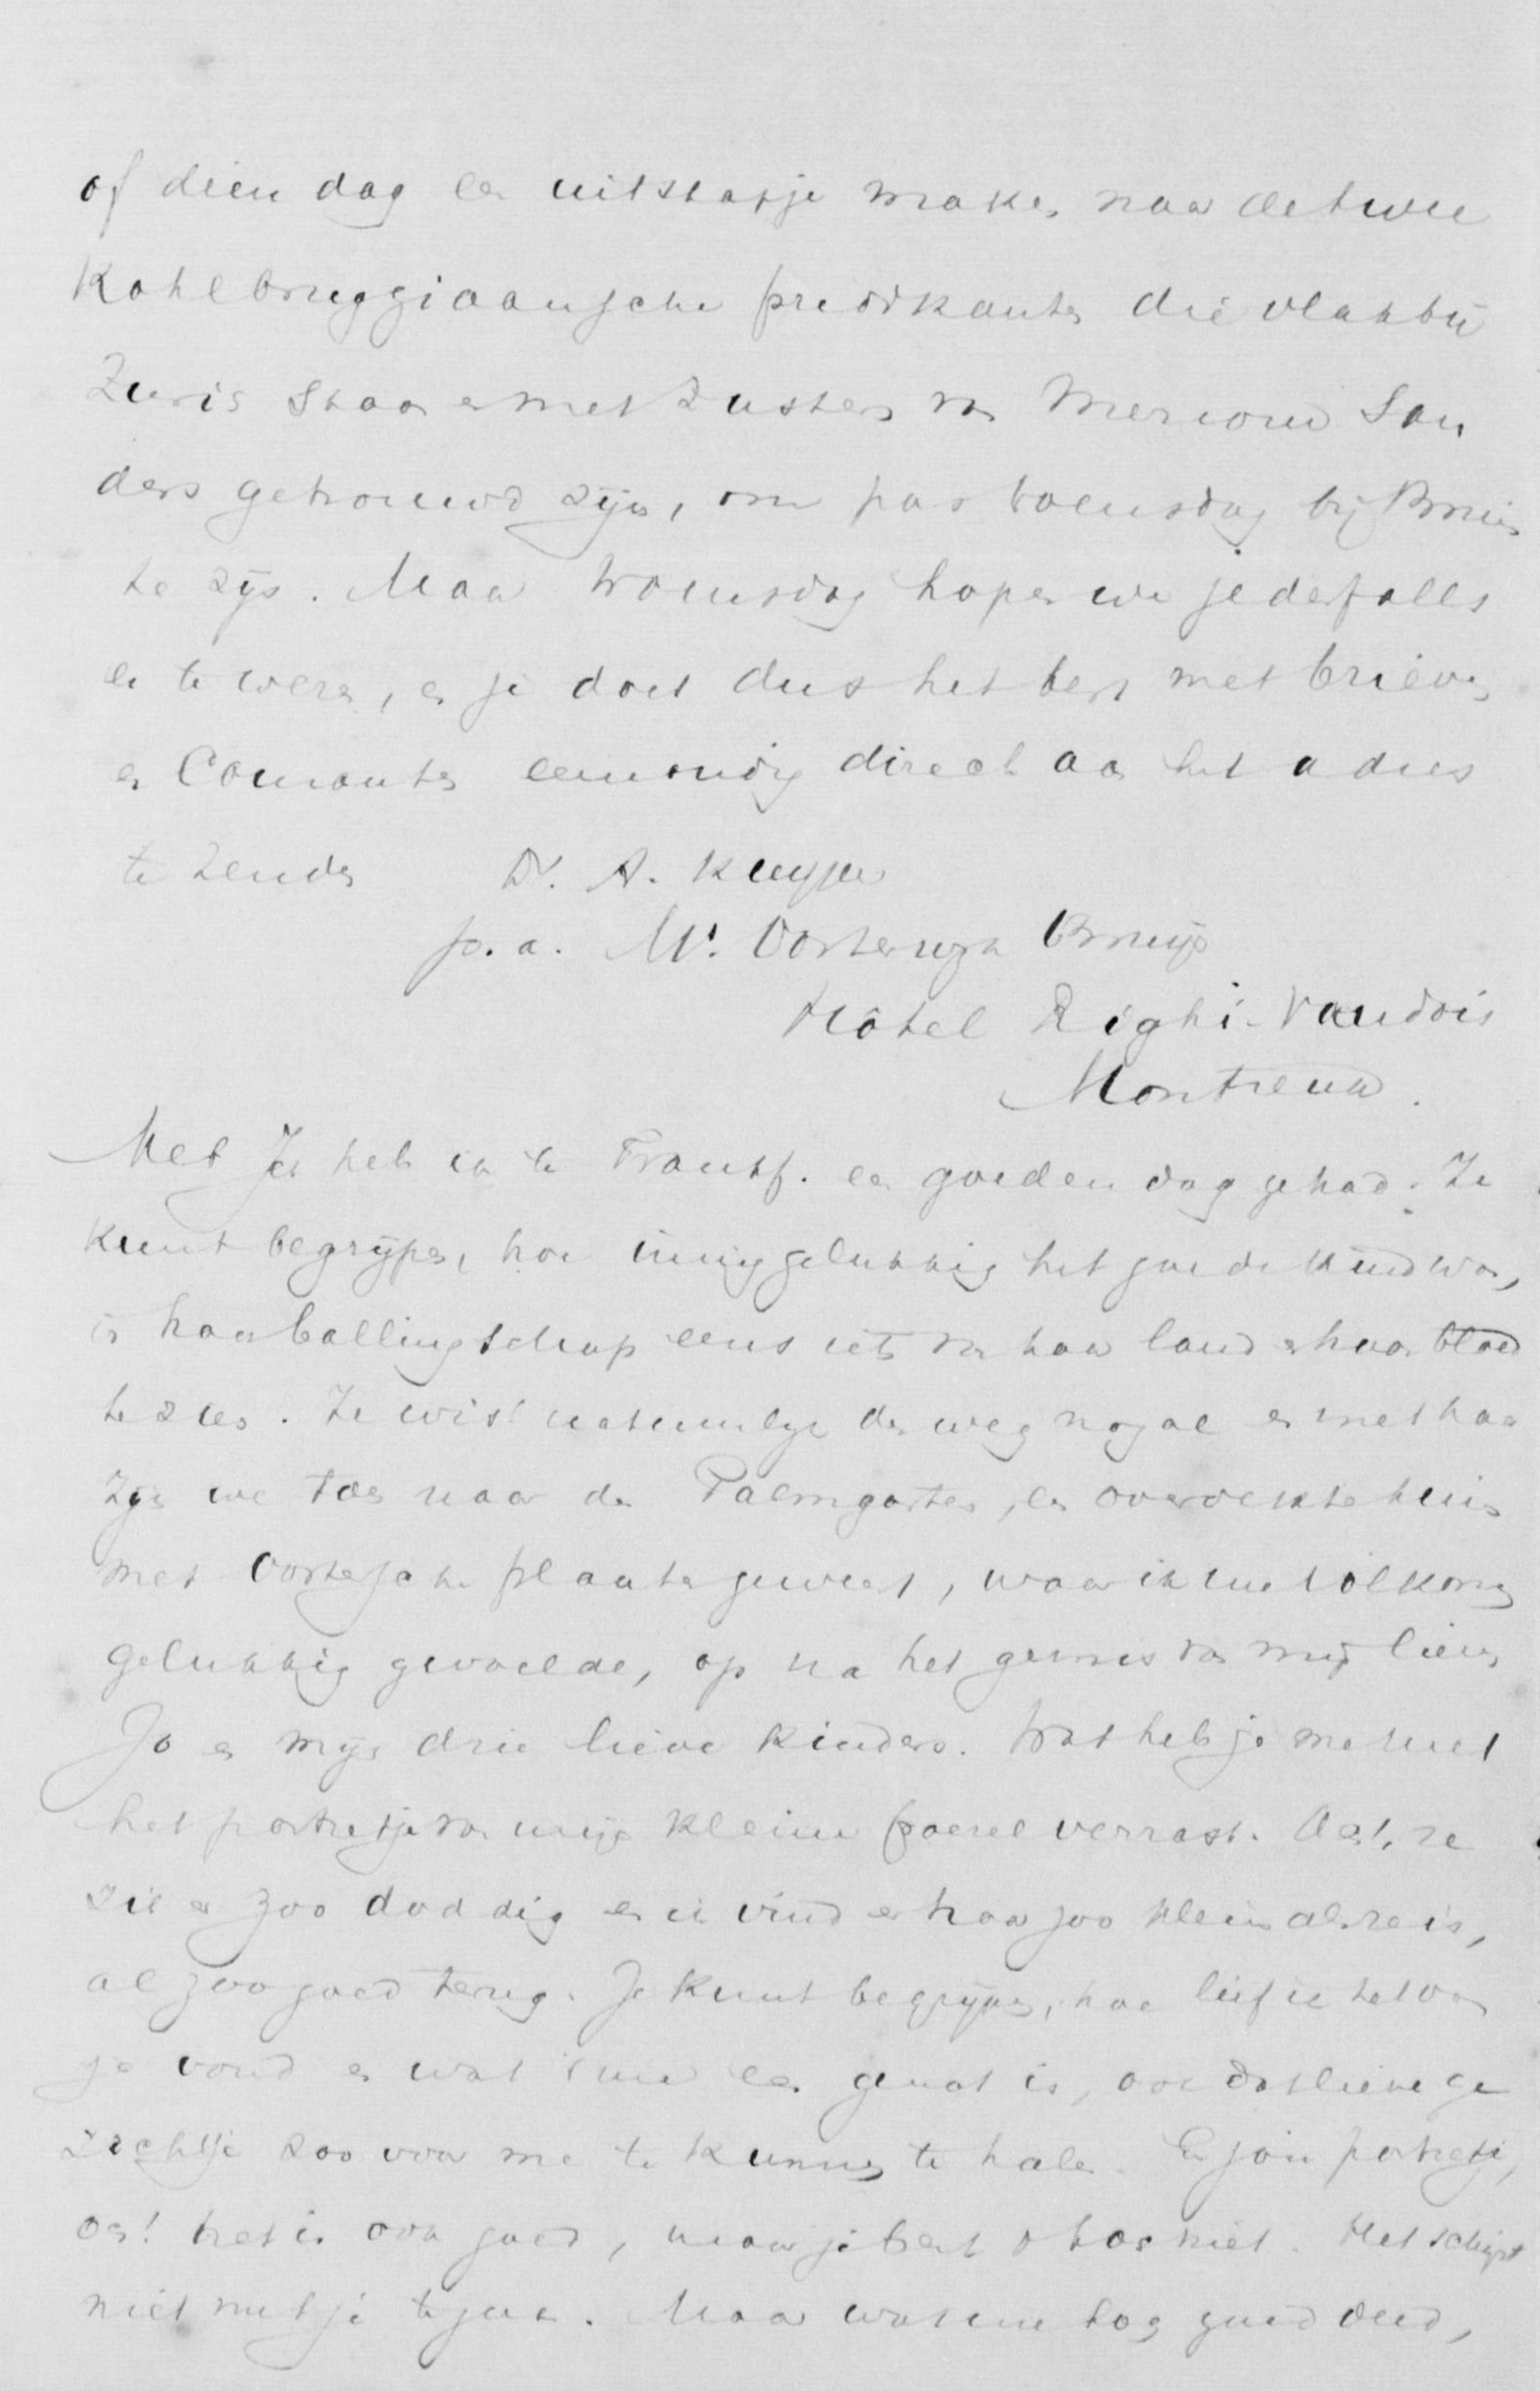 of dien dag een uitstapje maken naar de twee
Kohlbruggiaansche predikanten die vlakbij
Zurig staan en met Zusters van Mevrouw San
ders getrouwd zijn, om pas Woensdag bij Bruijn
te zijn. Maar Woensdag hopen we jedenfalls
er te wezen, en je doet dus het best met brieven
en Couranten eenvoudig direct aan het adres
te zenden Dr. A. Kuyper
p.a. Mr. Oosterwijk Bruijn
Hôtel Righi-Vaudois
Montreux.
Met Jes heb ik te Frankf. een goeden dag gehad. Je
kunt begrijpen, hoe innig gelukkig het goede kind was,
in haar ballingschap eens iets van haar land en haar bloed
te zien. Ze wist natuurlijk den weg nogal en met haar
zijn we toen naar den Palmgarten, een overdekte tuin
met Oostersche planten geweest, waar ik me volkomen
gelukkig gevoelde, op na het gemis van mijn lieve
Jo en mijn drie lieve kinders. Wat heb je me met
het portretje van mijn kleine poesel verrast. Och, ze
ziet er zoo doddig en ik vind er haar zoo klein als ze is,
al zoo goed terug. Je kunt begrijpen, hoe lief ik het van
je vond en wat 't me een genot is, ook dat lieve ge
zichtje zoo voor me te kunnen te halen. En jou portretje,
och! het is ook goed, maar je bent 't toch niet. Het schijnt
niet met je te gaan. Maar wat me toch goed deed,